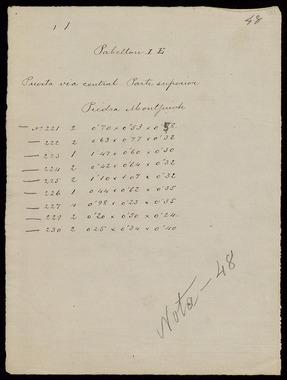 11
48
Pabellon I E
Puerta via central Parte superior
Piedra Montjuich
— Nº 221 2 0'70 x 0'53 x 0'35
— 222 2 0'63 x 0'77 x 0'32
— 223 1 1'47 x 0'60 x 0'30
— 224 2 0'42 x 0'64 x 0'32
— 225 2 1'10 x 1'07 x 0'32
— 226 1 0'44 x 0'62 x 0'35
— 227 0'98 x 0'23 x 0'35
— 229 2 0'20 x 0'50 x 0'24
— 230 2 0'25 x 0'34 x 0'40
Nota - 48